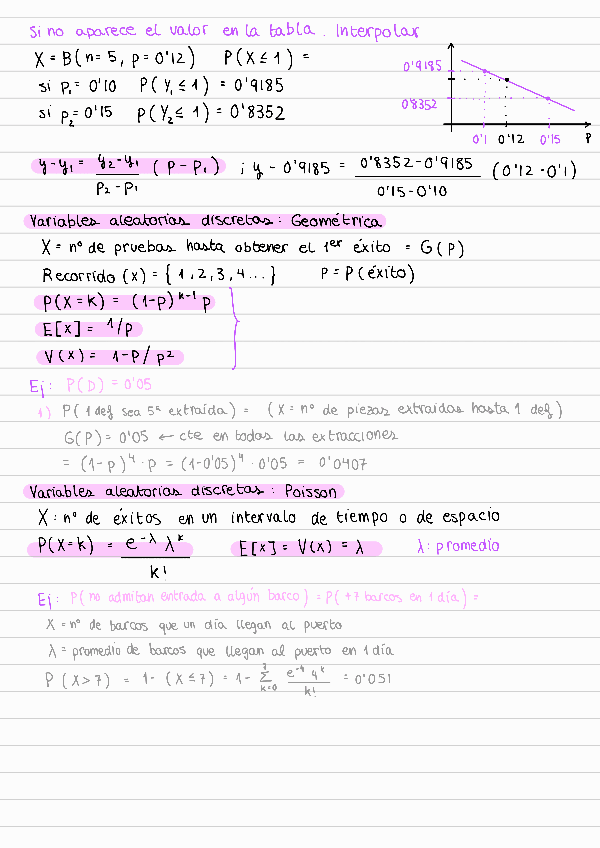 Si no aparece el valor en la tabla. Interpolar
X = B(n = 5, p = 0'12) P(X ≤ 1) =
si p₁ = 0'10 P(Y₁ ≤ 1) = 0'9185
si p₂ = 0'15 P(Y₂ ≤ 1) = 0'8352
0'9185
0'8352
0'1 0'12 0'15 P
y - y₁ = (y₂ - y₁)/(p₂ - p₁) (p - p₁) ; y - 0'9185 = (0'8352 - 0'9185)/(0'15 - 0'10) (0'12 - 0'1)
Variables aleatorias discretas: Geométrica
X = nº de pruebas hasta obtener el 1er éxito = G(p)
Recorrido (x) = {1, 2, 3, 4...} P = P(éxito)
P(X = k) = (1-p)^(k-1) p
E[x] = 1/p
V(x) = 1-p/p²
Ej: P(D) = 0'05
1) P(1 def sea 5ª extraída) = (X = nº de piezas extraidas hasta 1 def)
G(P) = 0'05 ← cte en todas las extracciones
= (1-p)⁴ · p = (1-0'05)⁴ · 0'05 = 0'0407
Variables aleatorias discretas: Poisson
X: nº de éxitos en un intervalo de tiempo o de espacio
P(X=k) = e^(-λ) λ^k / k! E[x] = V(x) = λ λ: promedio
Ej: P(no admitan entrada a algún barco) = P(+7 barcos en 1 día) =
X = nº de barcos que un día llegan al puerto
λ = promedio de barcos que llegan al puerto en 1 día
P(X > 7) = 1 - (X ≤ 7) = 1 - Σ_{k=0}^{7} e^(-4) 4^k / k! = 0'051